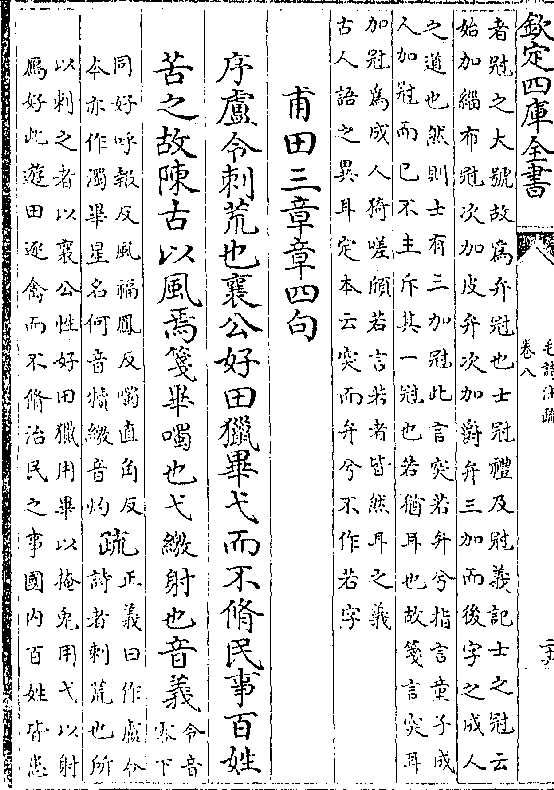 欽定四庫全書
毛詩注疏
卷八
者冠之大號故為弁冠也士冠禮及冠義記士之冠云
始加緇布冠次加皮弁次加爵弁三加而後字之成人
之道也然則士有三加冠此言突若弁兮指言童子成
人加冠而已不主斥其一冠也若猶耳也故箋言突耳
加冠為成人猗嗟頎若言若者皆然耳之義
古人語之異耳定本云突而弁兮不作若字
甫田三章章四句
序盧令刺荒也襄公好田獵畢弋而不脩民事百姓
苦之故陳古以風焉箋畢噣也弋繳射也音義令音
零下
同好呼報反風福鳳反噣直角反
本亦作濁畢星名何音犢繳音灼疏正義曰作盧令
詩者刺荒也所
以刺之者以襄公性好田獵用畢以掩兔用弋以射
鴈好此遊田逐禽而不脩治民之事國內百姓皆患